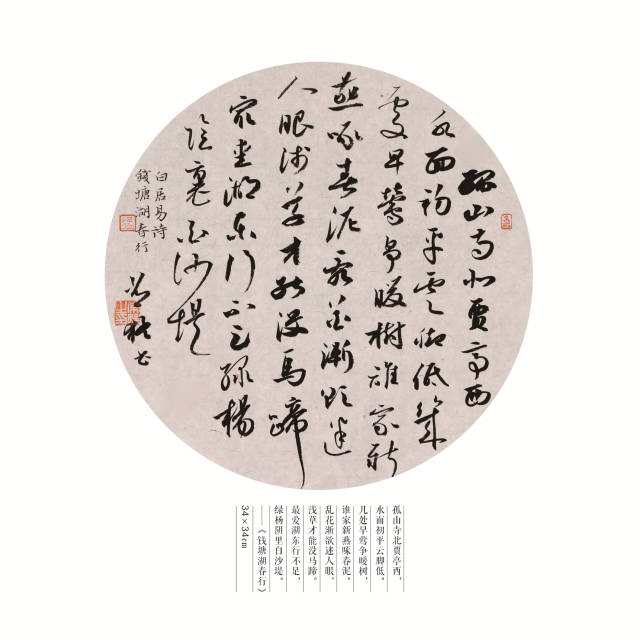 孤山寺北賈亭西
水面初平雲腳低幾
處早鶯爭暖樹誰家新
燕啄春泥亂花漸欲迷
人眼淺草才能沒馬蹄
最愛湖東行不足綠楊
陰裏白沙堤
白居易詩
錢塘湖春行
孤山寺北贾亭西，
水面初平云脚低。
几处早莺争暖树，
谁家新燕啄春泥。
乱花渐欲迷人眼，
浅草才能没马蹄。
最爱湖东行不足，
绿杨阴里白沙堤。
——《钱塘湖春行》
34×34cm